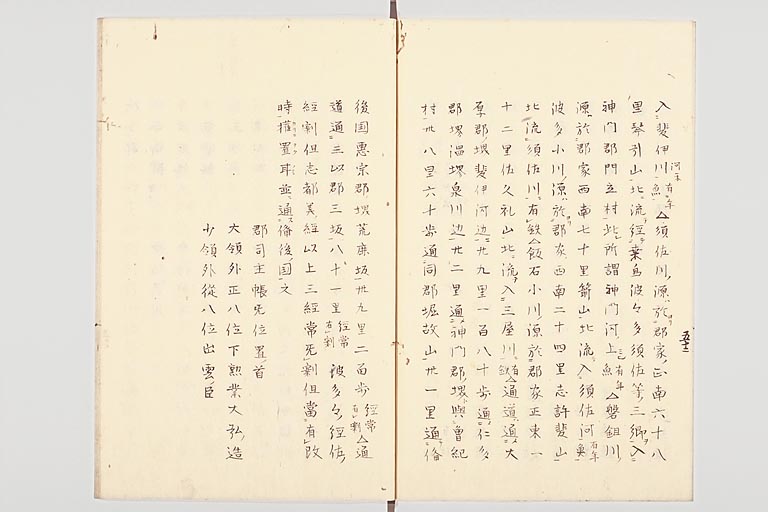 入斐伊川河末有年魚△須佐川源於郡家正南六十八
里琴引山北流経葉烏波々多須佐等三郷入
神門郡門立村此所謂神門河上也有年魚△磐鉏川
源於郡家西南七十里箭山北流入須佐河有年魚
波多小川源於郡家西南二十四里志許斐山
北流須佐川有鉄△飯石小川源於郡家正東一
十二里佐久礼山北流入三屋川有鉄△通道通大
原郡堺斐伊河辺廿九里一百八十歩通仁多
郡堺温堺泉川辺廿二里通神門郡堺與曽紀
村廿八里六十歩通同郡堀故山廿一里通俻
後国恵宗郡堺荒鹿坂卅九里二百歩経常有剗△通
道通三以郡三坂八十一里経常有剗波多々経佐
経剗但志都美経以上三経常无剗但當有政
時権置耳並通俻後国文
郡司主帳无位置首
大領外正八位下勲業大弘造
少領外従八位出雲臣